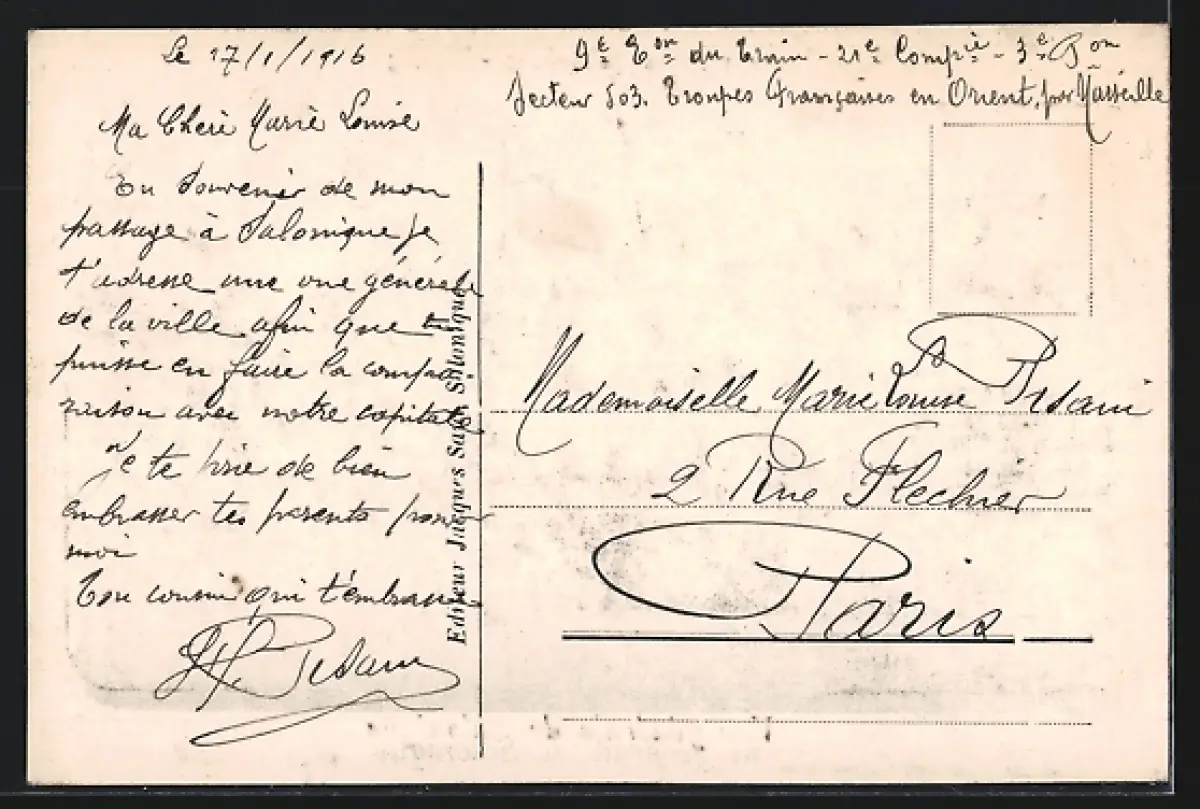 Le 17/1/1916
Ma Cheré Marie Louise
En Souvenir de mon
passage à Salonique je
t'adresse une vue générale
de la ville afin que tu
puisse en faire la compa
raison avec notre capitale
Je te prie de bien
embrasser tes parents pour
moi
Ton cousin qui t'embrasse
Pisani
Editeur Jacques Saul Salonique
9e Eon du Train - 21e Compie - 3e Bon
Secteur 503. Troupes Françaises en Orient, par Marseille
Mademoiselle Marie Louise Pisani
2 Rue Flechier
Paris